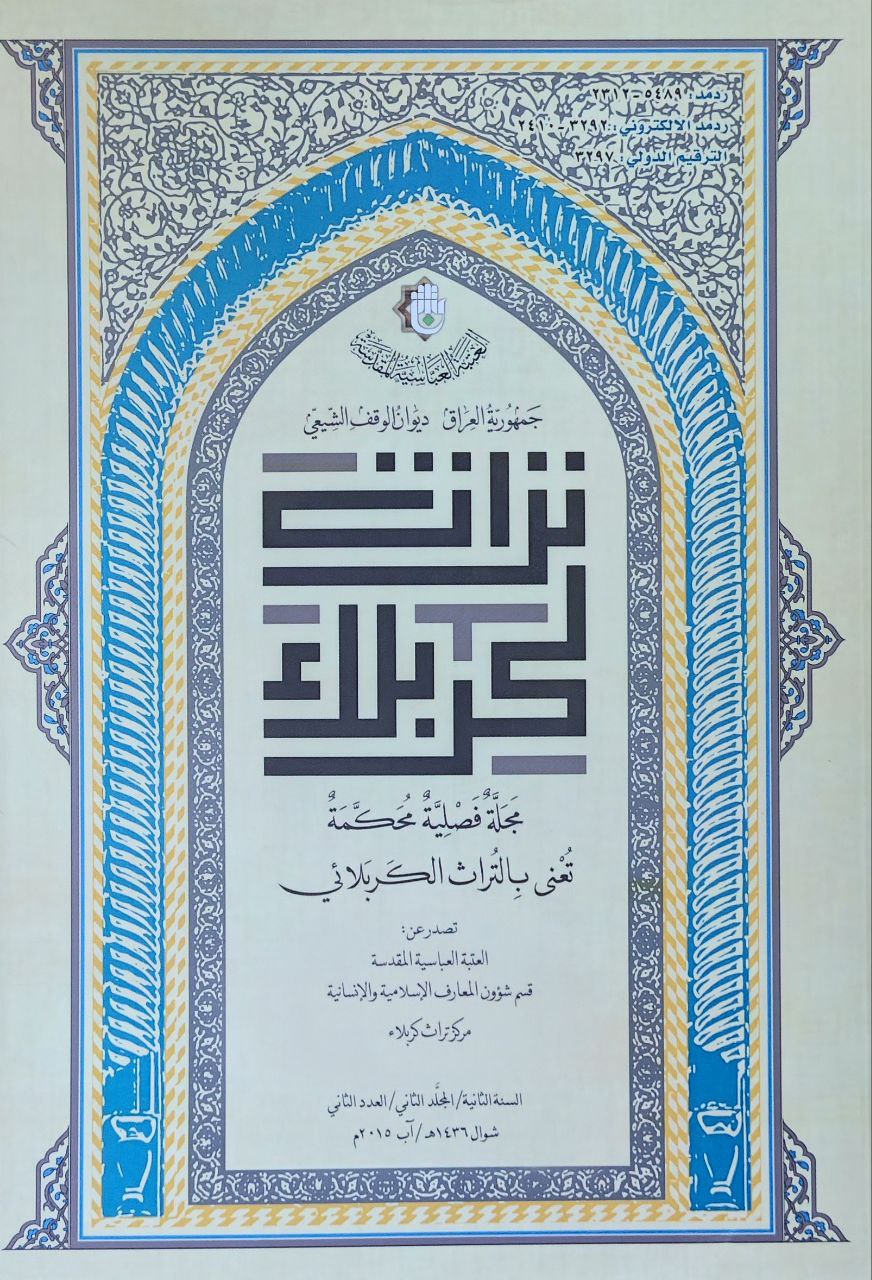 ردمد: ٥٤٨٩-٢٣١٢
ردمد الالكتروني: ٣٢٩٢-٢٤١٠
الترقيم الدولي: ٣٢٩٧
العتبة العباسية المقدسة
جَمهُوريّةُ العِراق ديوَانُ الوَقفِ الشِيعيّ
تراث
كربلاء
مَجَلَّةٌ فَصْلِيَّةٌ مُحَكَّمَةٌ
تُعْنى بِالتُراث الكَربَلائي
تصدر عن:
العتبة العباسية المقدسة
قسم شؤون المعارف الإسلامية والإنسانية
مركز تراث كربلاء
السنة الثانية/المجلَّد الثاني/العدد الثاني
شوال ١٤٣٦هـ/آب ٢٠١٥م